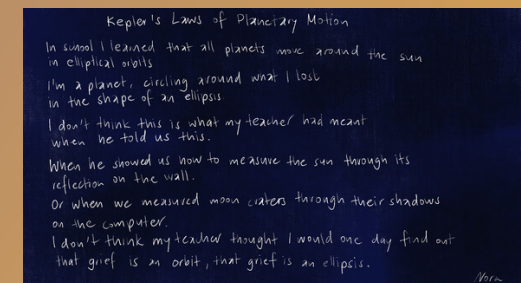 Kepler's Laws of Planetary Motion
In school I learned that all planets move around the sun
in elliptical orbits
I'm a planet, circling around what I lost
in the shape of an ellipsis
I don't think this is what my teacher had meant
when he told us this.
When he showed us how to measure the sun through its
reflection on the wall.
Or when we measured moon craters through their shadows
on the computer.
I don't think my teacher thought I would one day find out
that grief is an orbit, that grief is an ellipsis.
Nora